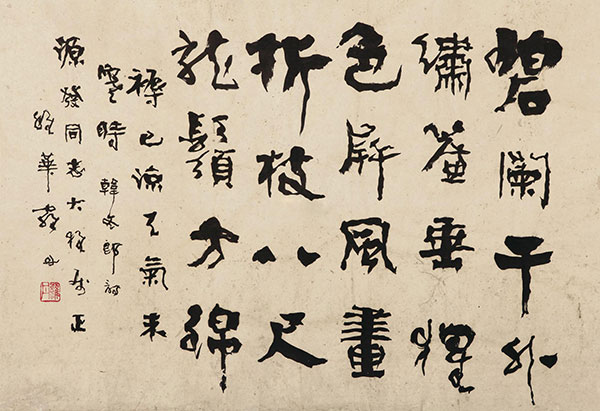 碧闌干外
繡簾垂猩
色屏風畫
折枝八尺
龍鬚方錦
褥已涼天氣未
寒時 韓冬郎詩
源發同志大雅正
稚華羅丹